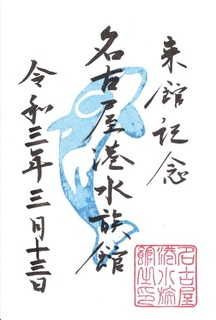 来館記念
名古屋港水族館
令和三年三月十三日
名古屋
港水族
館之印